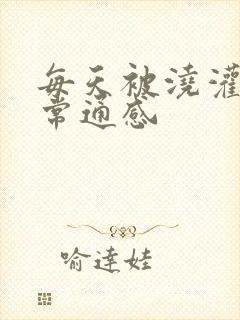 每天被浇灌
常通感
喻达娃